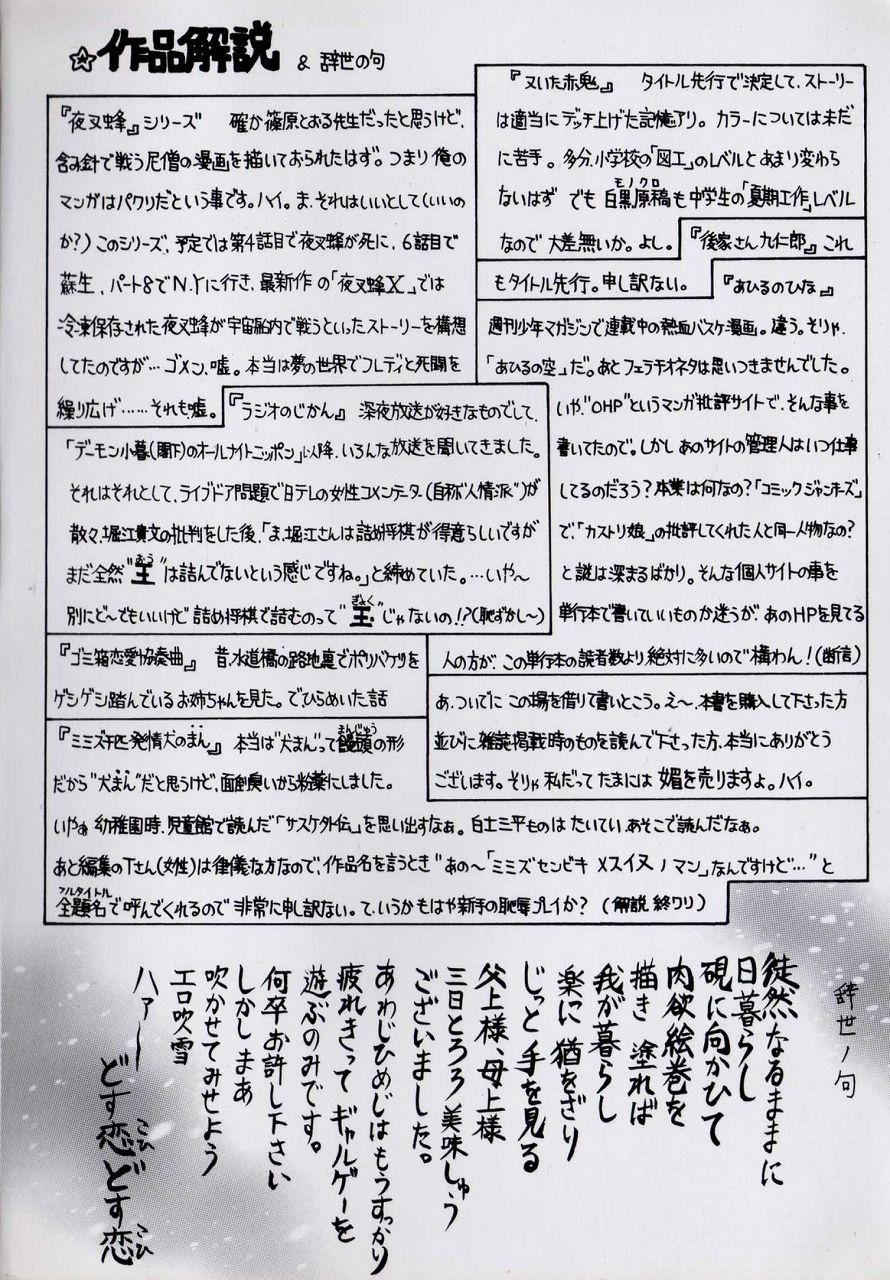 ☆作品解説 & 辞世の句
『夜叉蜂』シリーズ 確か篠原とおる先生だったと思うけど、
含み針で戦う尼僧の漫画を描いておられたはず。つまり俺の
マンガはパクリだという事です。ハイ。ま、それはいいとして(いいの
か?)このシリーズ、予定では第4話目で夜叉蜂が死に、6話目で
蘇生、パート8でN.Yに行き、最新作の「夜叉蜂X」では
冷凍保存された夜叉蜂が宇宙船内で戦うといったストーリーを構想
してたのですが…ゴメン、嘘。本当は夢の世界でフレディと死闘を
繰り広げ……それも嘘。
『ラジオのじかん』 深夜放送が好きなものでして、
「デーモン小暮(閣下)のオールナイトニッポン」以降、いろんな放送を聞いてきました。
それはそれとして、ライブドア問題で日テレの女性コメンテーター(自称“人情派”)が
散々、堀江貴文の批判をした後、「ま、堀江さんは詰め将棋が得意らしいですが
まだ全然“王(おう)”は詰んでないという感じですね。」と締めていた。…いや〜
別にど〜でもいいけど詰め将棋で詰むのって“玉(ぎょく)”じゃないの!?(恥ずかし〜)
『又いた赤鬼』 タイトル先行で決定して、ストーリー
は適当にデッチ上げた記憶アリ。カラーについては未だ
に苦手。多分、小学校の「図工」のレベルとあまり変わら
ないはず でも白黒(モノクロ)原稿も中学生の「夏期工作」レベル
なので大差無いか。よし。
『後家さん九仁郎』これ
もタイトル先行。申し訳ない。
『あひるのひな』
週刊少年マガジンで連載中の熱血バスケ漫画。違う。そりゃ、
「あひるの空」だ。あとフェラチオネタは思いつきませんでした。
いや、“OHP”というマンガ批評サイトで、そんな事を
書いてたので。しかしあのサイトの管理人はいつ仕事
してるのだろう?本業は何なの?「コミックジャンキーズ」
で、「カストリ娘」の批評してくれた人と同一人物なの?
と謎は深まるばかり。そんな個人サイトの事を
単行本で書いていいものか迷うが、あのHPを見てる
人の方が、この単行本の読者数より絶対に多いので構わん!(断信)
『ゴミ箱恋愛協奏曲』 昔、水道橋の路地裏でポリバケツを
ゲシゲシ踏んでいるお姉ちゃんを見た。でひらめいた話
あ、ついでにこの場を借りて書いとこう。え〜、本書を購入して下さった方
並びに雑誌掲載時のものを読んで下さった方、本当にありがとう
ございます。そりゃ私だってたまには媚を売りますよ。ハイ。
『ミミズ千匹発情犬のまん』 本当は“犬まん”って饅頭(まんじゅう)の形
だから“犬まん”だと思うけど、面倒臭いから粉薬にしました。
いやぁ幼稚園時、児童館で読んだ「サスケ外伝」を思い出すなぁ。白土三平ものはたいていあそこで読んだなぁ。
あと編集のTさん(女性)は律儀な方なので、作品名を言うとき“あの〜「ミミズセンビキ メスイヌノマン」なんですけど…”と
全題名(フルタイトル)で呼んでくれるので非常に申し訳ない。て、いうかもはや新手の恥辱プレイか?(解説終ワリ)
辞世ノ句
徒然なるままに
日暮らし
硯に向かひて
肉欲絵巻を
描き 塗れば
我が暮らし
楽に猶をざり
じっと手を見る
父上様、母上様
三日とろろ美味しゅう
ございました。
あわじひめじはもうすっかり
疲れきってギャルゲーを
遊ぶのみです。
何卒お許し下さい
しかしまあ
吹かせてみせよう
エロ吹雪
ハァー
どす恋(こひ)どす恋(こひ)